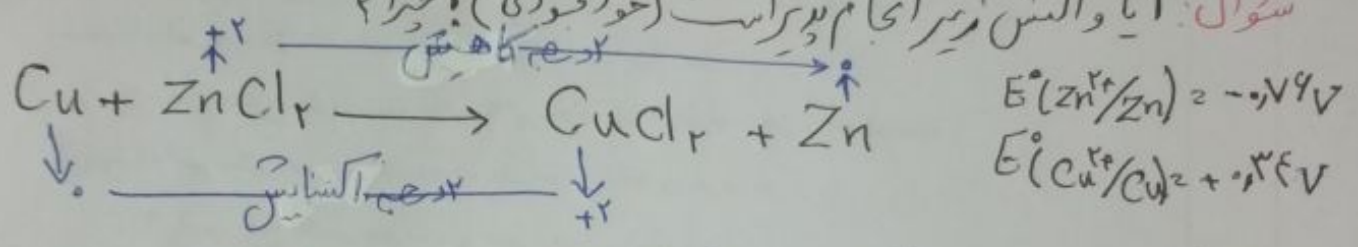 سوال: آیا واکنش زیر انجام پذیر است (خودبخودی)؟ چرا؟
+۲ ۲ درجه کاهش ۰
Cu + ZnCl۲ → CuCl۲ + Zn
۰ ۲ درجه اکسایش +۲
E°(Zn²⁺/Zn) = -۰,۷۶V
E°(Cu²⁺/Cu) = +۰,۳٤V